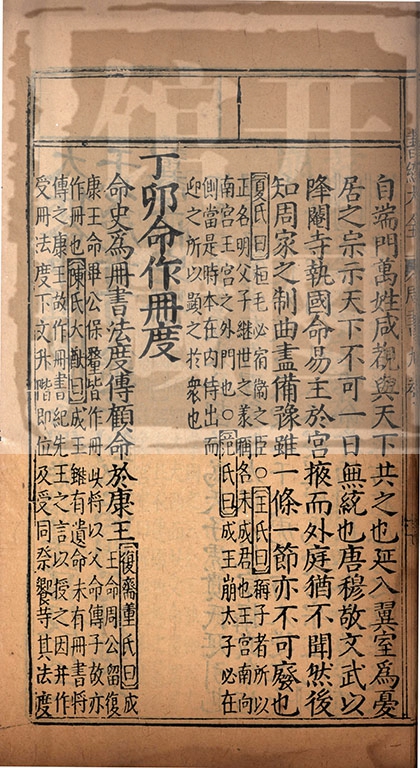 自端門萬姓咸觀與天下共之也延入翼室爲憂
居之宗示天下不可一日無統也唐穆敬文武以
降閹寺執國命易主於宮掖而外庭猶不聞然後
知周家之制曲盡備豫雖一條一節亦不可廢也
夏氏曰桓毛必宿衛之臣○王氏曰稱子者所以
正名明父子繼世之義稱名未成君也王宮南向
南宮王宮之外門也○范氏曰成王崩太子必在
側當是時本在内侍出而
迎之所以顯之於衆也
丁卯命作冊度
命史爲冊書法度傳顧命於康王復齋董氏曰成
王命周公留後
康王命畢公保釐皆作冊此將以父命傳子故亦
作冊也陳氏大猷曰成王雖有遺命未有冊書將
傳之康王故作冊書紀先王之言以授之因并作
受冊法度下文升階即位及受同祭饗等其法度